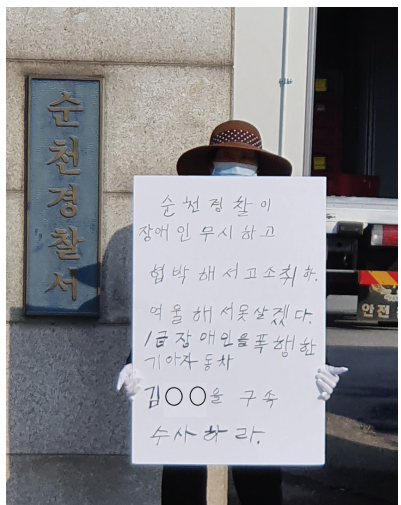 순천경찰서
순천경찰이
장애인무시하고
협박해서고소취하.
억울해서못살겠다.
1급장애인을폭행한
기아자동차
김○○을 구속
수사하라.
안전